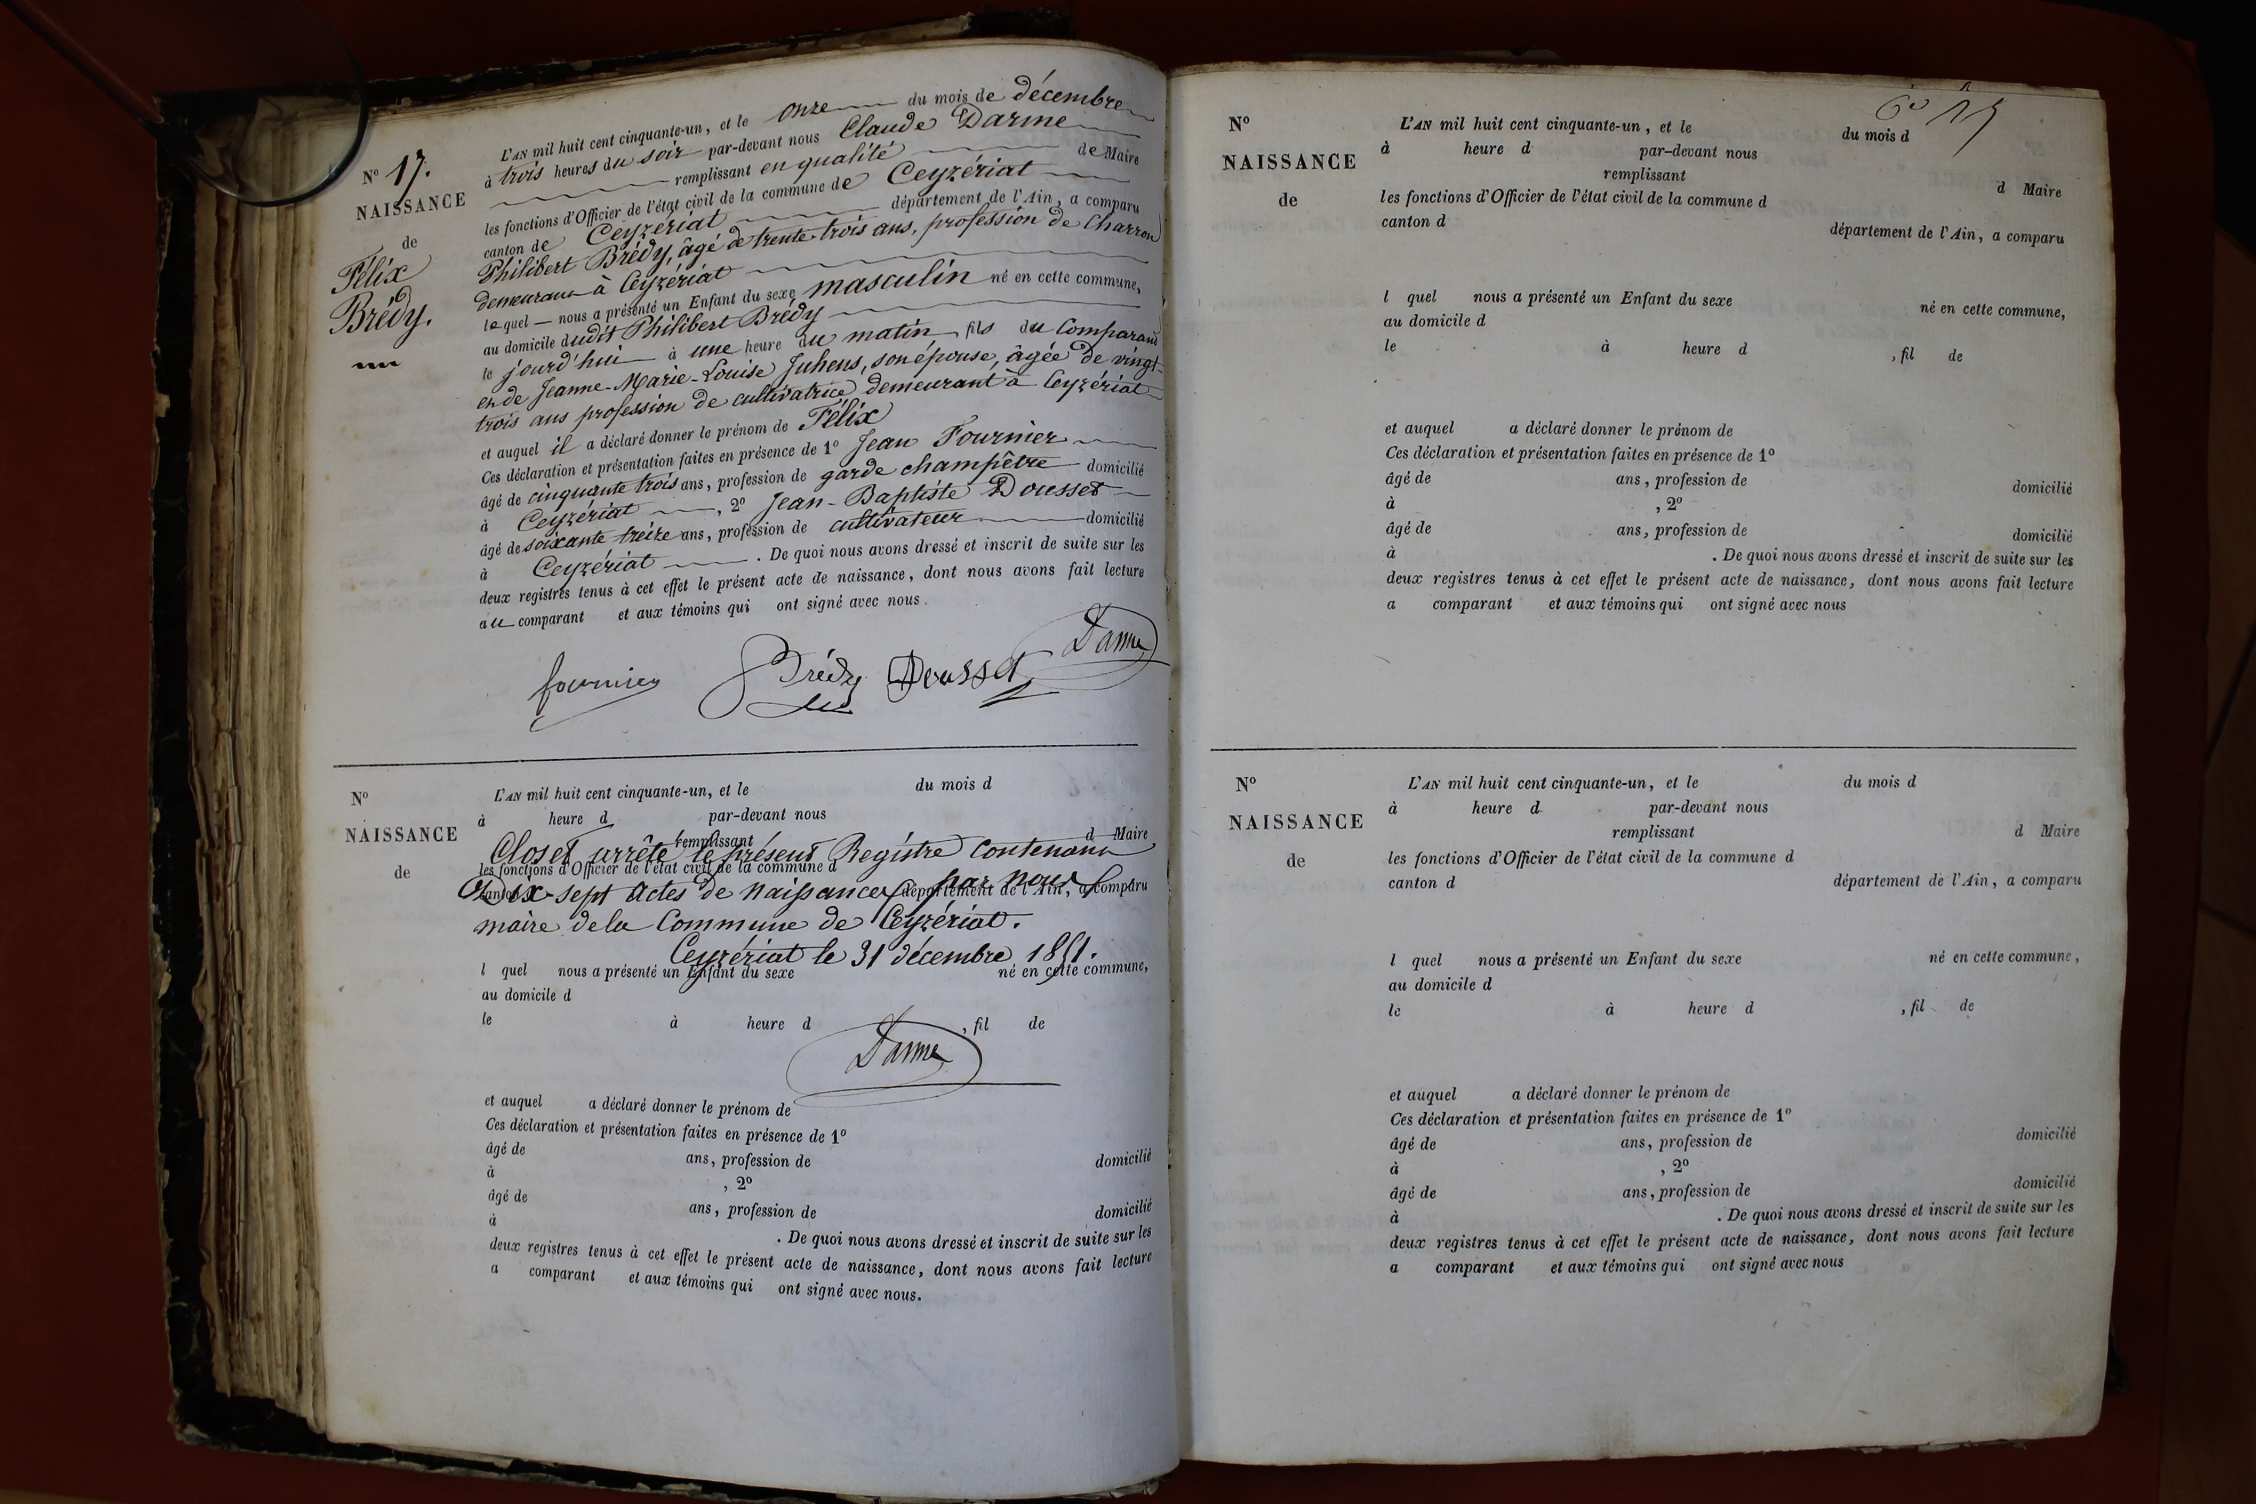 L'AN mil huit cent cinquante-un, et le onze du mois de décembre
à trois heures du soir par-devant nous Claude Darme
remplissant en qualité de Maire
les fonctions d'Officier de l'état civil de la commune de Ceyzériat
canton de Ceyzériat département de l'Ain, a comparu
Philibert Brédy, âgé de trente trois ans, profession de Charron
demeurant à Ceyzériat
lequel nous a présenté un Enfant du sexe masculin né en cette commune,
au domicile dudit Philibert Brédy
le jourd'hui à une heure du matin fils du Comparant
et de Jeanne-Marie-Louise Juhens, son épouse, âgée de vingt-
trois ans profession de cultivatrice demeurant à Ceyzériat
et auquel il a déclaré donner le prénom de Félix
Ces déclaration et présentation faites en présence de 1º Jean Fournier
âgé de cinquante trois ans, profession de garde champêtre domicilié
à Ceyzériat, 2º Jean-Baptiste Dousset
âgé de soixante treize ans, profession de cultivateur domicilié
à Ceyzériat. De quoi nous avons dressé et inscrit de suite sur les
deux registres tenus à cet effet le présent acte de naissance, dont nous avons fait lecture
au comparant et aux témoins qui ont signé avec nous.
Nº 17.
NAISSANCE
de
Félix
Brédy.
fournier Brédy Dousset Darme
Nº
NAISSANCE
de
L'AN mil huit cent cinquante-un, et le du mois d
à heure d par-devant nous
remplissant d Maire
Clos et arrêté le présent Registre contenant
les fonctions d'Officier de l'état civil de la commune d
canton d département de l'Ain, a comparu
Dix-sept actes de naissances par nous
maire de la Commune de Ceyzériat.
Ceyzériat le 31 décembre 1851.
l quel nous a présenté un Enfant du sexe né en cette commune,
au domicile d
le à heure d , fil de
Darme
et auquel a déclaré donner le prénom de
Ces déclaration et présentation faites en présence de 1º
âgé de ans, profession de domicilié
à , 2º
âgé de ans, profession de domicilié
à . De quoi nous avons dressé et inscrit de suite sur les
deux registres tenus à cet effet le présent acte de naissance, dont nous avons fait lecture
a comparant et aux témoins qui ont signé avec nous.
Nº
NAISSANCE
de
L'AN mil huit cent cinquante-un, et le du mois d
à heure d par-devant nous
remplissant d Maire
les fonctions d'Officier de l'état civil de la commune d
canton d département de l'Ain, a comparu
l quel nous a présenté un Enfant du sexe né en cette commune,
au domicile d
le à heure d , fil de
et auquel a déclaré donner le prénom de
Ces déclaration et présentation faites en présence de 1º
âgé de ans, profession de domicilié
à , 2º
âgé de ans, profession de domicilié
à . De quoi nous avons dressé et inscrit de suite sur les
deux registres tenus à cet effet le présent acte de naissance, dont nous avons fait lecture
a comparant et aux témoins qui ont signé avec nous
Nº
NAISSANCE
de
L'AN mil huit cent cinquante-un, et le du mois d
à heure d par-devant nous
remplissant d Maire
les fonctions d'Officier de l'état civil de la commune d
canton d département de l'Ain, a comparu
l quel nous a présenté un Enfant du sexe né en cette commune,
au domicile d
le à heure d , fil de
et auquel a déclaré donner le prénom de
Ces déclaration et présentation faites en présence de 1º
âgé de ans, profession de domicilié
à , 2º
âgé de ans, profession de domicilié
à . De quoi nous avons dressé et inscrit de suite sur les
deux registres tenus à cet effet le présent acte de naissance, dont nous avons fait lecture
a comparant et aux témoins qui ont signé avec nous